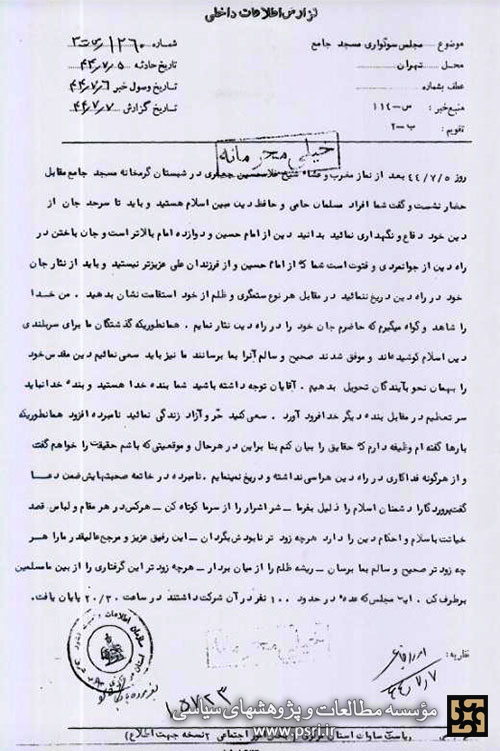 گزارش اطلاعات داخلی
موضوع : مجلس سوگواری مسجد جامع
شماره : ۱۲۶۰
محل : تهران
تاریخ حادثه : ۴۴/۷/۵
عطف بشماره :
تاریخ وصول خبر ۴۴/۷/۶
منبع خبر : س-۱۱۴
تاریخ گزارش : ۴۴/۷/۷
تقویم : ب-۲
خیلی محرمانه
روز ۴۴/۷/۵ بعد از نماز مغرب و عشاء شیخ غلامحسین جعفری در شبستان گرمخانه مسجد جامع مقابل
حضار نشست و گفت شما افراد مسلمان حامی و حافظ دین مبین اسلام هستید و باید تا سرحد جان از
دین خود دفاع و نگهداری نمائید بدانید دین از امام حسین و دوازده امام بالاتر است و جان باختن در
راه دین از جوانمردی و فتوت است شما که از امام حسین و از فرزندان علی عزیزتر نیستید و باید از نثار جان
خود در راه دین دریغ ننمائید در مقابل هر نوع ستمگری و ظلم از خود استقامت نشان بدهید . من خدا
را شاهد و گواه میگیرم که حاضرم جان خود را در راه دین نثار نمایم . همانطوریکه گذشتگان ما برای سربلندی
دین اسلام کوشیده‌اند و موفق شدند صحیح و سالم آنرا بما برسانند ما نیز باید سعی نمائیم دین مقدس خود
را بهمان نحو بآیندگان تحویل بدهیم . آقایان توجه داشته باشید شما بنده خدا هستید و بنده خدا نباید
سر تعظیم در مقابل بنده دیگر خدا فرود آورد . سعی کنید حر و آزاد زندگی نمائید نامبرده افزود همانطوریکه
بارها گفته‌ام وظیفه دارم که حقایق را بیان کنم بنا براین در هر حال و موقعیتی که باشم حقیقت را خواهم گفت
و از هرگونه فداکاری در راه دین هراسی نداشته و دریغ نمینمایم . نامبرده در خاتمه صحبتهایش ضمن دعا
گفت پروردگارا دشمنان اسلام را ذلیل بفرما – شر اشرار را از سر ما کوتاه کن – هرکس در هر مقام و لباس قصد
خیانت باسلام و احکام دین را دارد هرچه زود تر نابودش بگردان – این رفیق عزیز و مرجع عالیقدر ما را هر
چه زود تر صحیح و سالم بما برسان – ریشه ظلم را از میان بردار – هرچه زود تر این گرفتاری را از بین ما مسلمین
برطرف کن . این مجلس که عده در حدود ۱۰۰ نفر در آن شرکت داشتند در ساعت ۲۰/۳۰ پایان یافت.
نظریه :
خیلی محرمانه
۴۴/۷/۷
۱۵۷۲۳
موسسه مطالعات و پژوهشهای سیاسی
www.psri.ir
ریاست ساواک استان اجتماعی (نسخه جهت اطلاع)